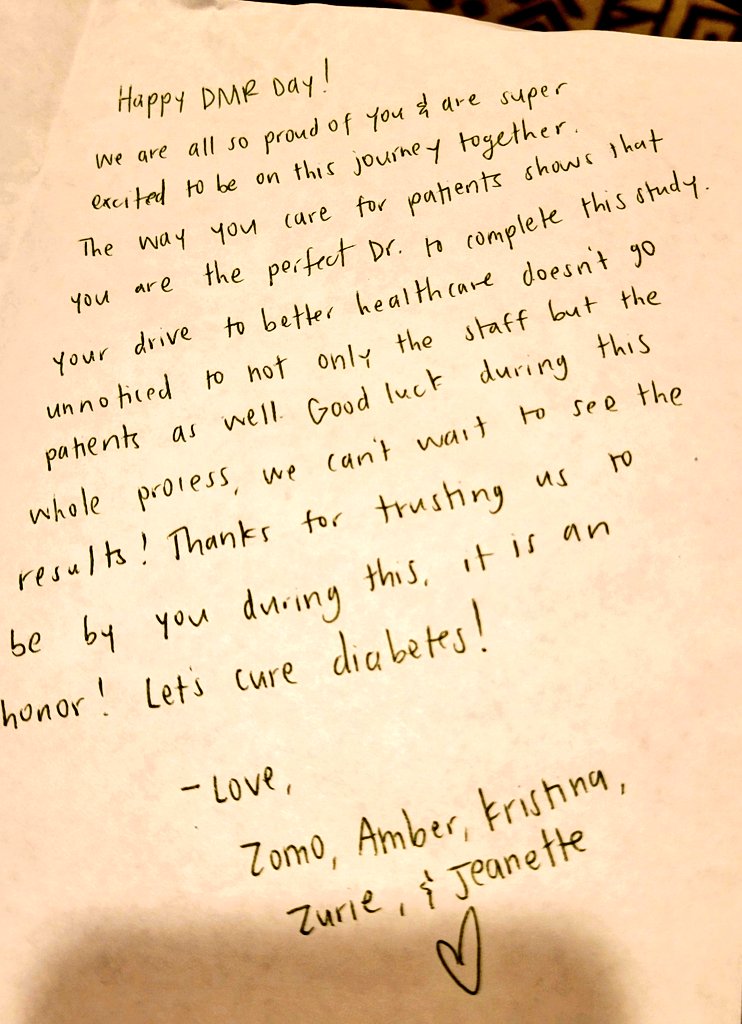 Happy DMR Day!
We are all so proud of you & are super
excited to be on this journey together.
The way you care for patients shows that
you are the perfect Dr. to complete this study.
Your drive to better healthcare doesn't go
unnoticed to not only the staff but the
patients as well. Good luck during this
whole process, we can't wait to see the
results! Thanks for trusting us to
be by you during this, it is an
honor! Let's cure diabetes!
- Love,
Zomo, Amber, Kristina,
Zurie, & Jeanette